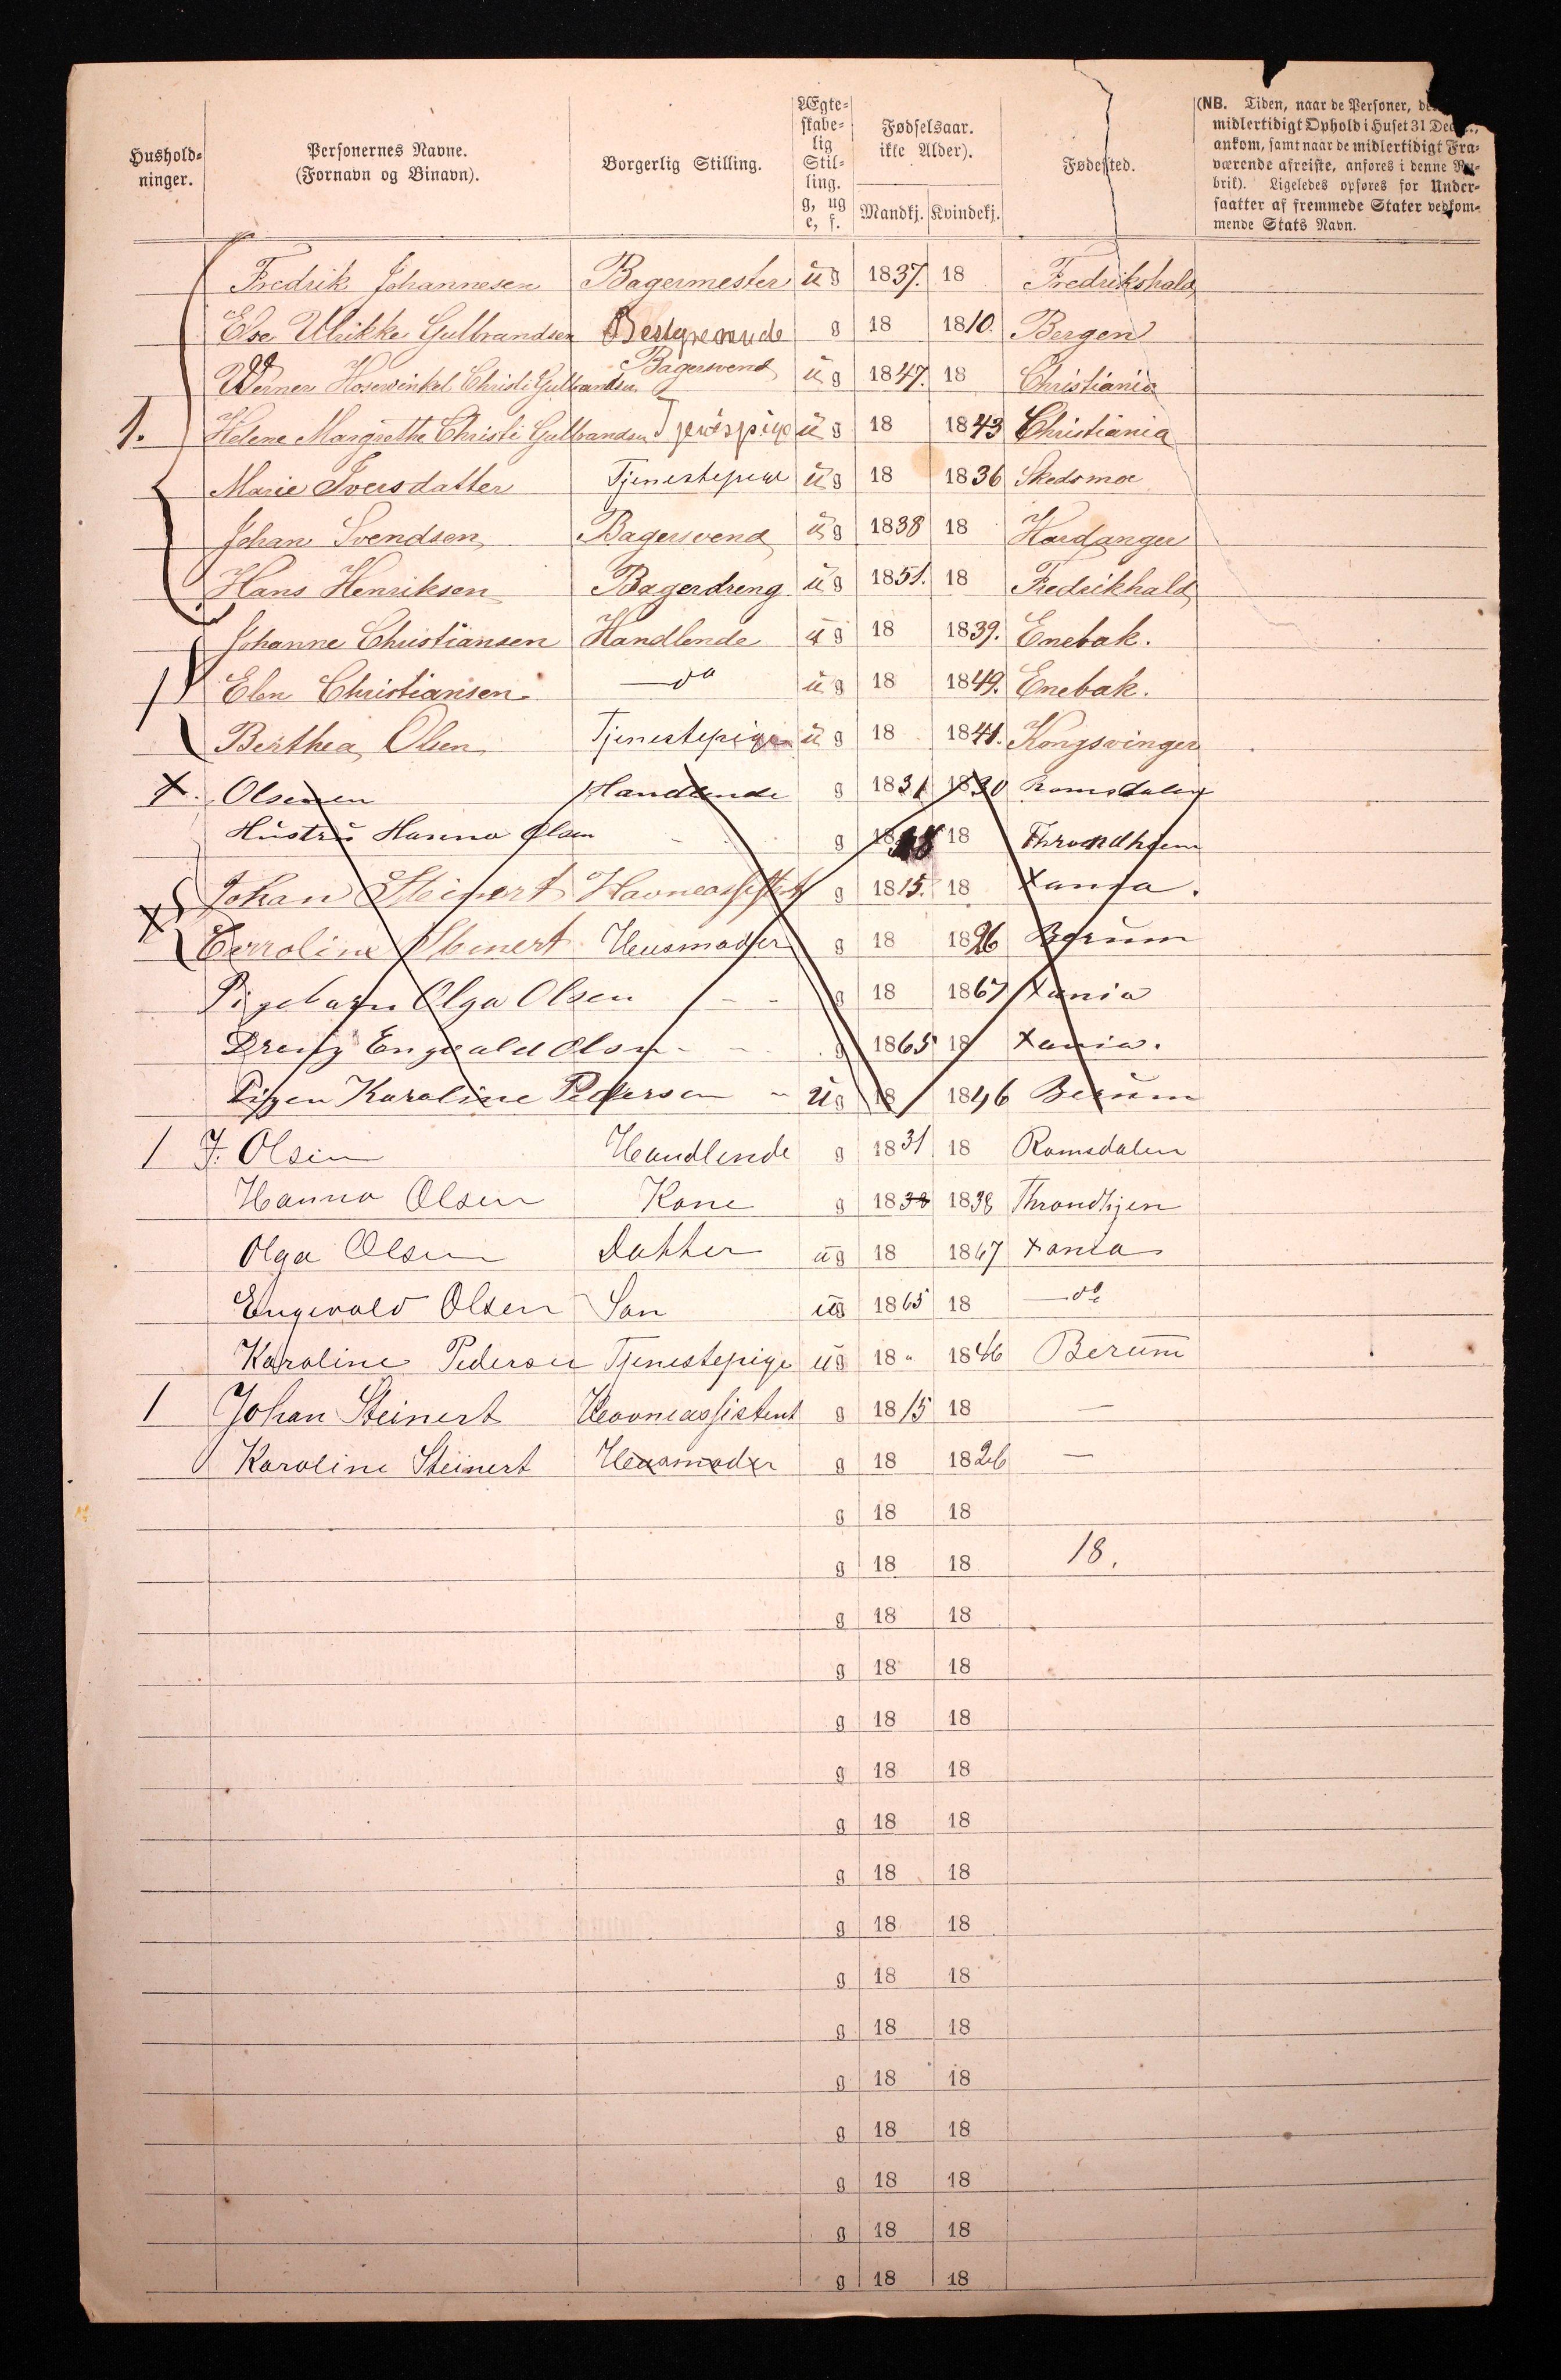 Hushold-ninger. Personernes Navne. (Fornavn og Binavn). Borgerlig Stilling. Ægte-skabe-lig Stil-ling. g, ug e, f. Fødselsaar. ikke Alder). Mandkj. Kvindekj. Fødested.
(NB. Tiden, naar de Personer, de
midlertidigt Ophold i Huset 31 Dec
ankom, samt naar de midlertidigt Fra-
værende afreiste, anføres i denne Ru-
brik). Ligeledes opføres for Under-
saatter af fremmede Stater vedkom-
mende Stats Navn.
Fredrik Johannesen Bagermester ug 1837. 18 Fredrikshald
Else Ulrikke Gulbrandsen Bestyrende g 18 1810. Bergen
Werner Hosewinkel Christi Gulbrandsen Bagersvend ug 1847. 18 Christiania
1. Helene Margrethe Christi Gulbrandsen ug 18 1843 Christiania
Marie Iversdatter Tjenestepige ug 18 1836 Skedsmoe
Johan Svendsen Bagersvend ug 1838 18 Hardanger
Hans Henriksen Bagerdreng ug 1851. 18 Fredrikhald
Johanne Christiansen Handlende ug 18 1839. Enebak.
1 Elen Christiansen — do ug 18 1849. Enebak.
Berthea Olsen Tjenestepige ug 18 1841. Kongsvinger
Olsen Handlende g 1831 1830 Romsdalen
Hustru Hanna Olsen g 18 18 Throndhjem
Johan Steinert Havneassistent g 1815. 18 Xania.
Carroline Steinert Husmoder g 18 1826 Berum
Pigebarn Olga Olsen - - g 18 1867 Xania
Dreng Engvald Olsen - - g 1865 18 Xania.
Pigen Karoline Pedersen - ug 18 1846 Berum
1 J. Olsen Handlende g 1831 18 Romsdalen
Hanna Olsen Kone g 1838 1838 Throndhjen
Olga Olsen Datter ug 18 1867 Xania
Engvald Olsen Søn ug 1865 18 — do
Karoline Pedersen Tjenestepige ug 18 " 1846 Berum
1 Johan Steinert Havneassistent g 1815 18 —
Karoline Steinert Husmoder g 18 1826 —
g 18 18
g 18 18 18.
g 18 18
g 18 18
g 18 18
g 18 18
g 18 18
g 18 18
g 18 18
g 18 18
g 18 18
g 18 18
g 18 18
g 18 18
g 18 18
g 18 18